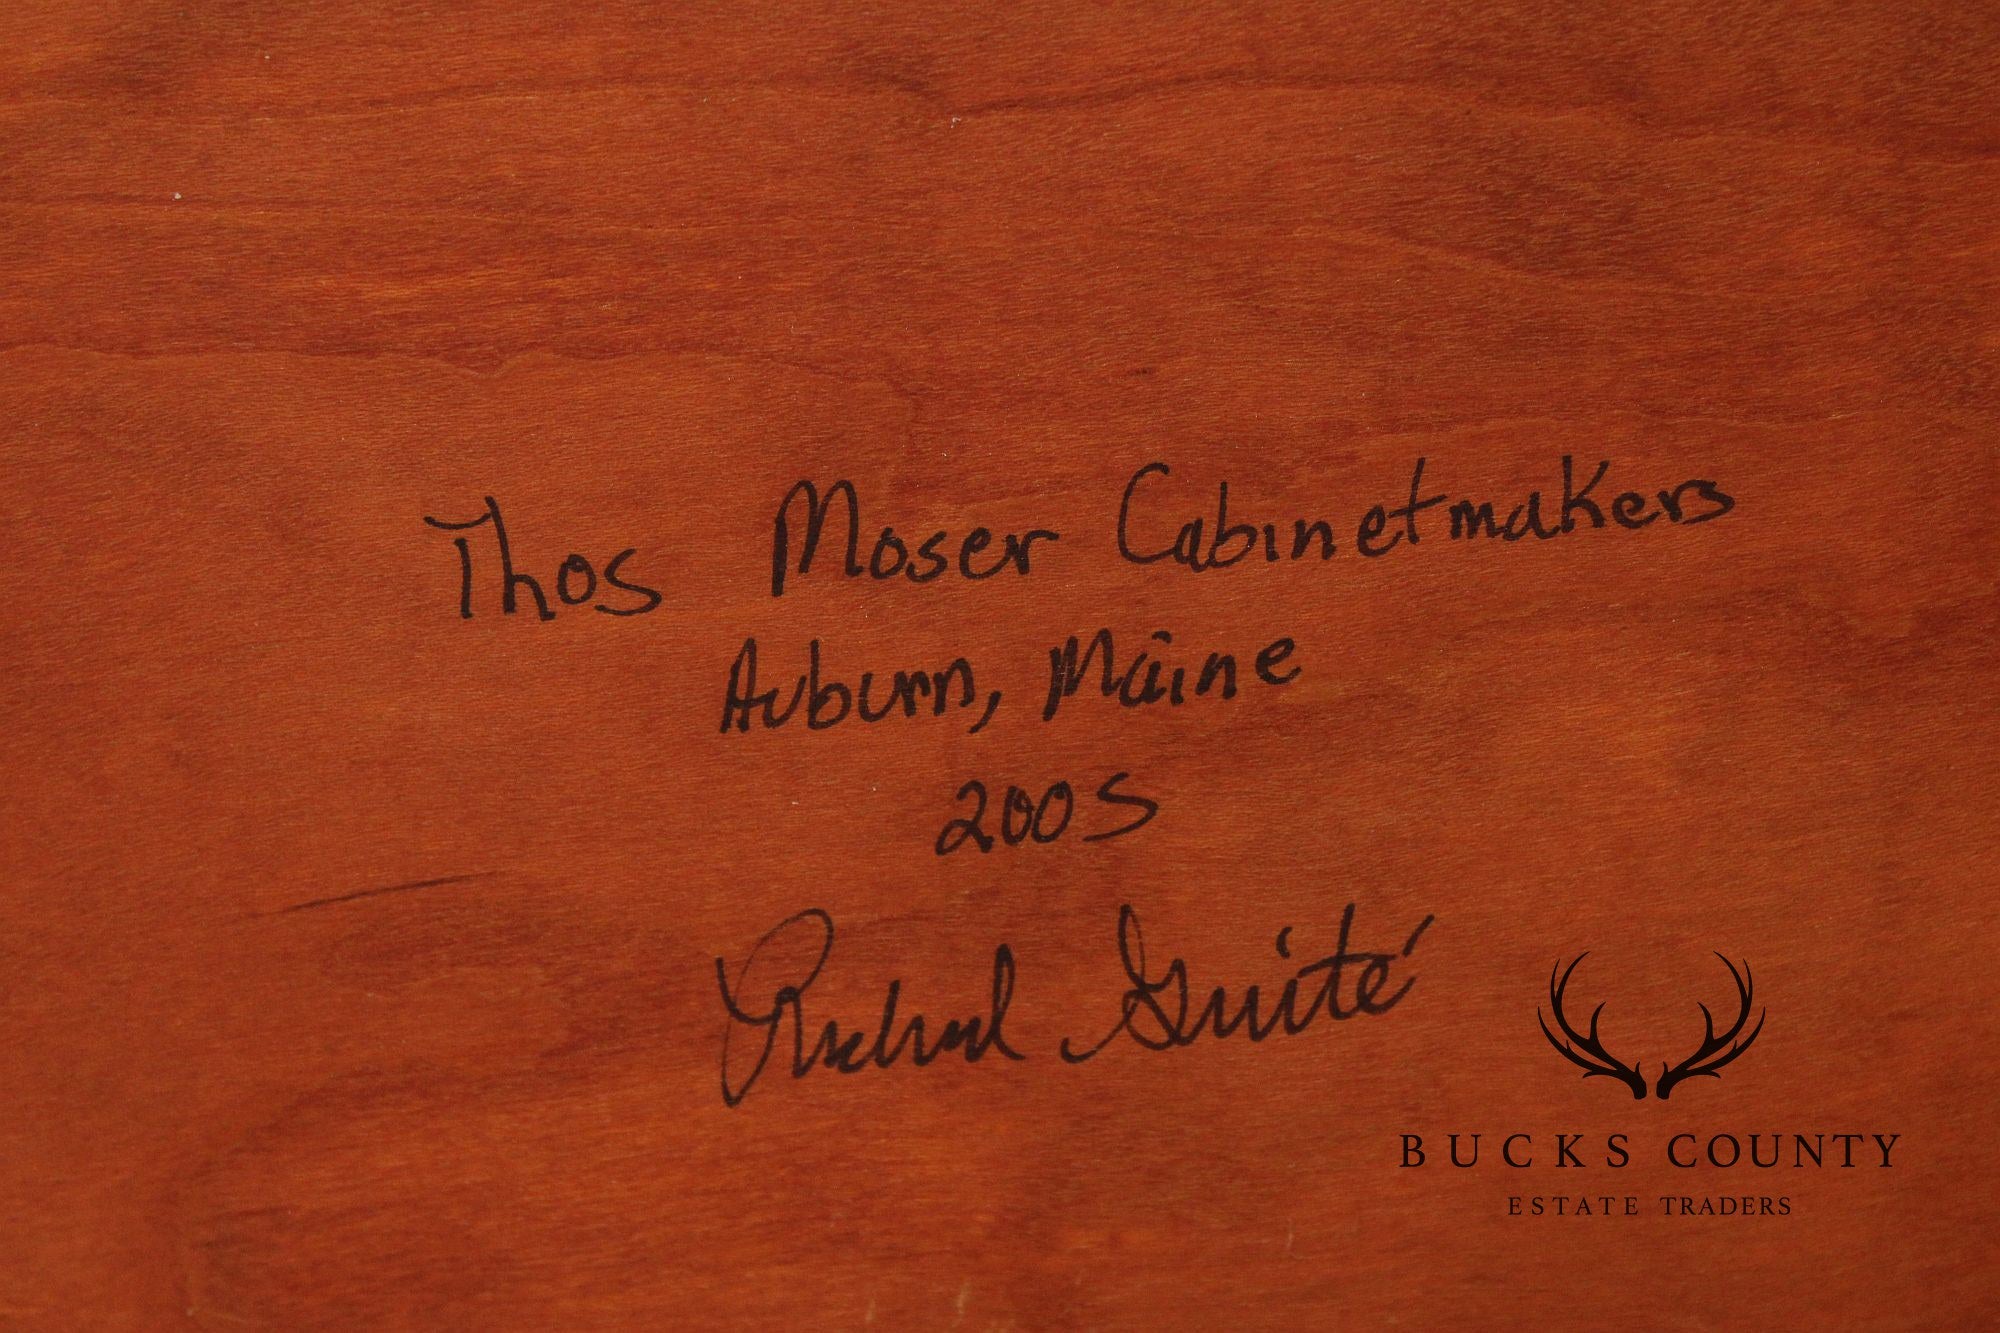 Thos Moser Cabinetmakers
Auburn, Maine
2005
Guité
BUCKS COUNTY
ESTATE TRADERS